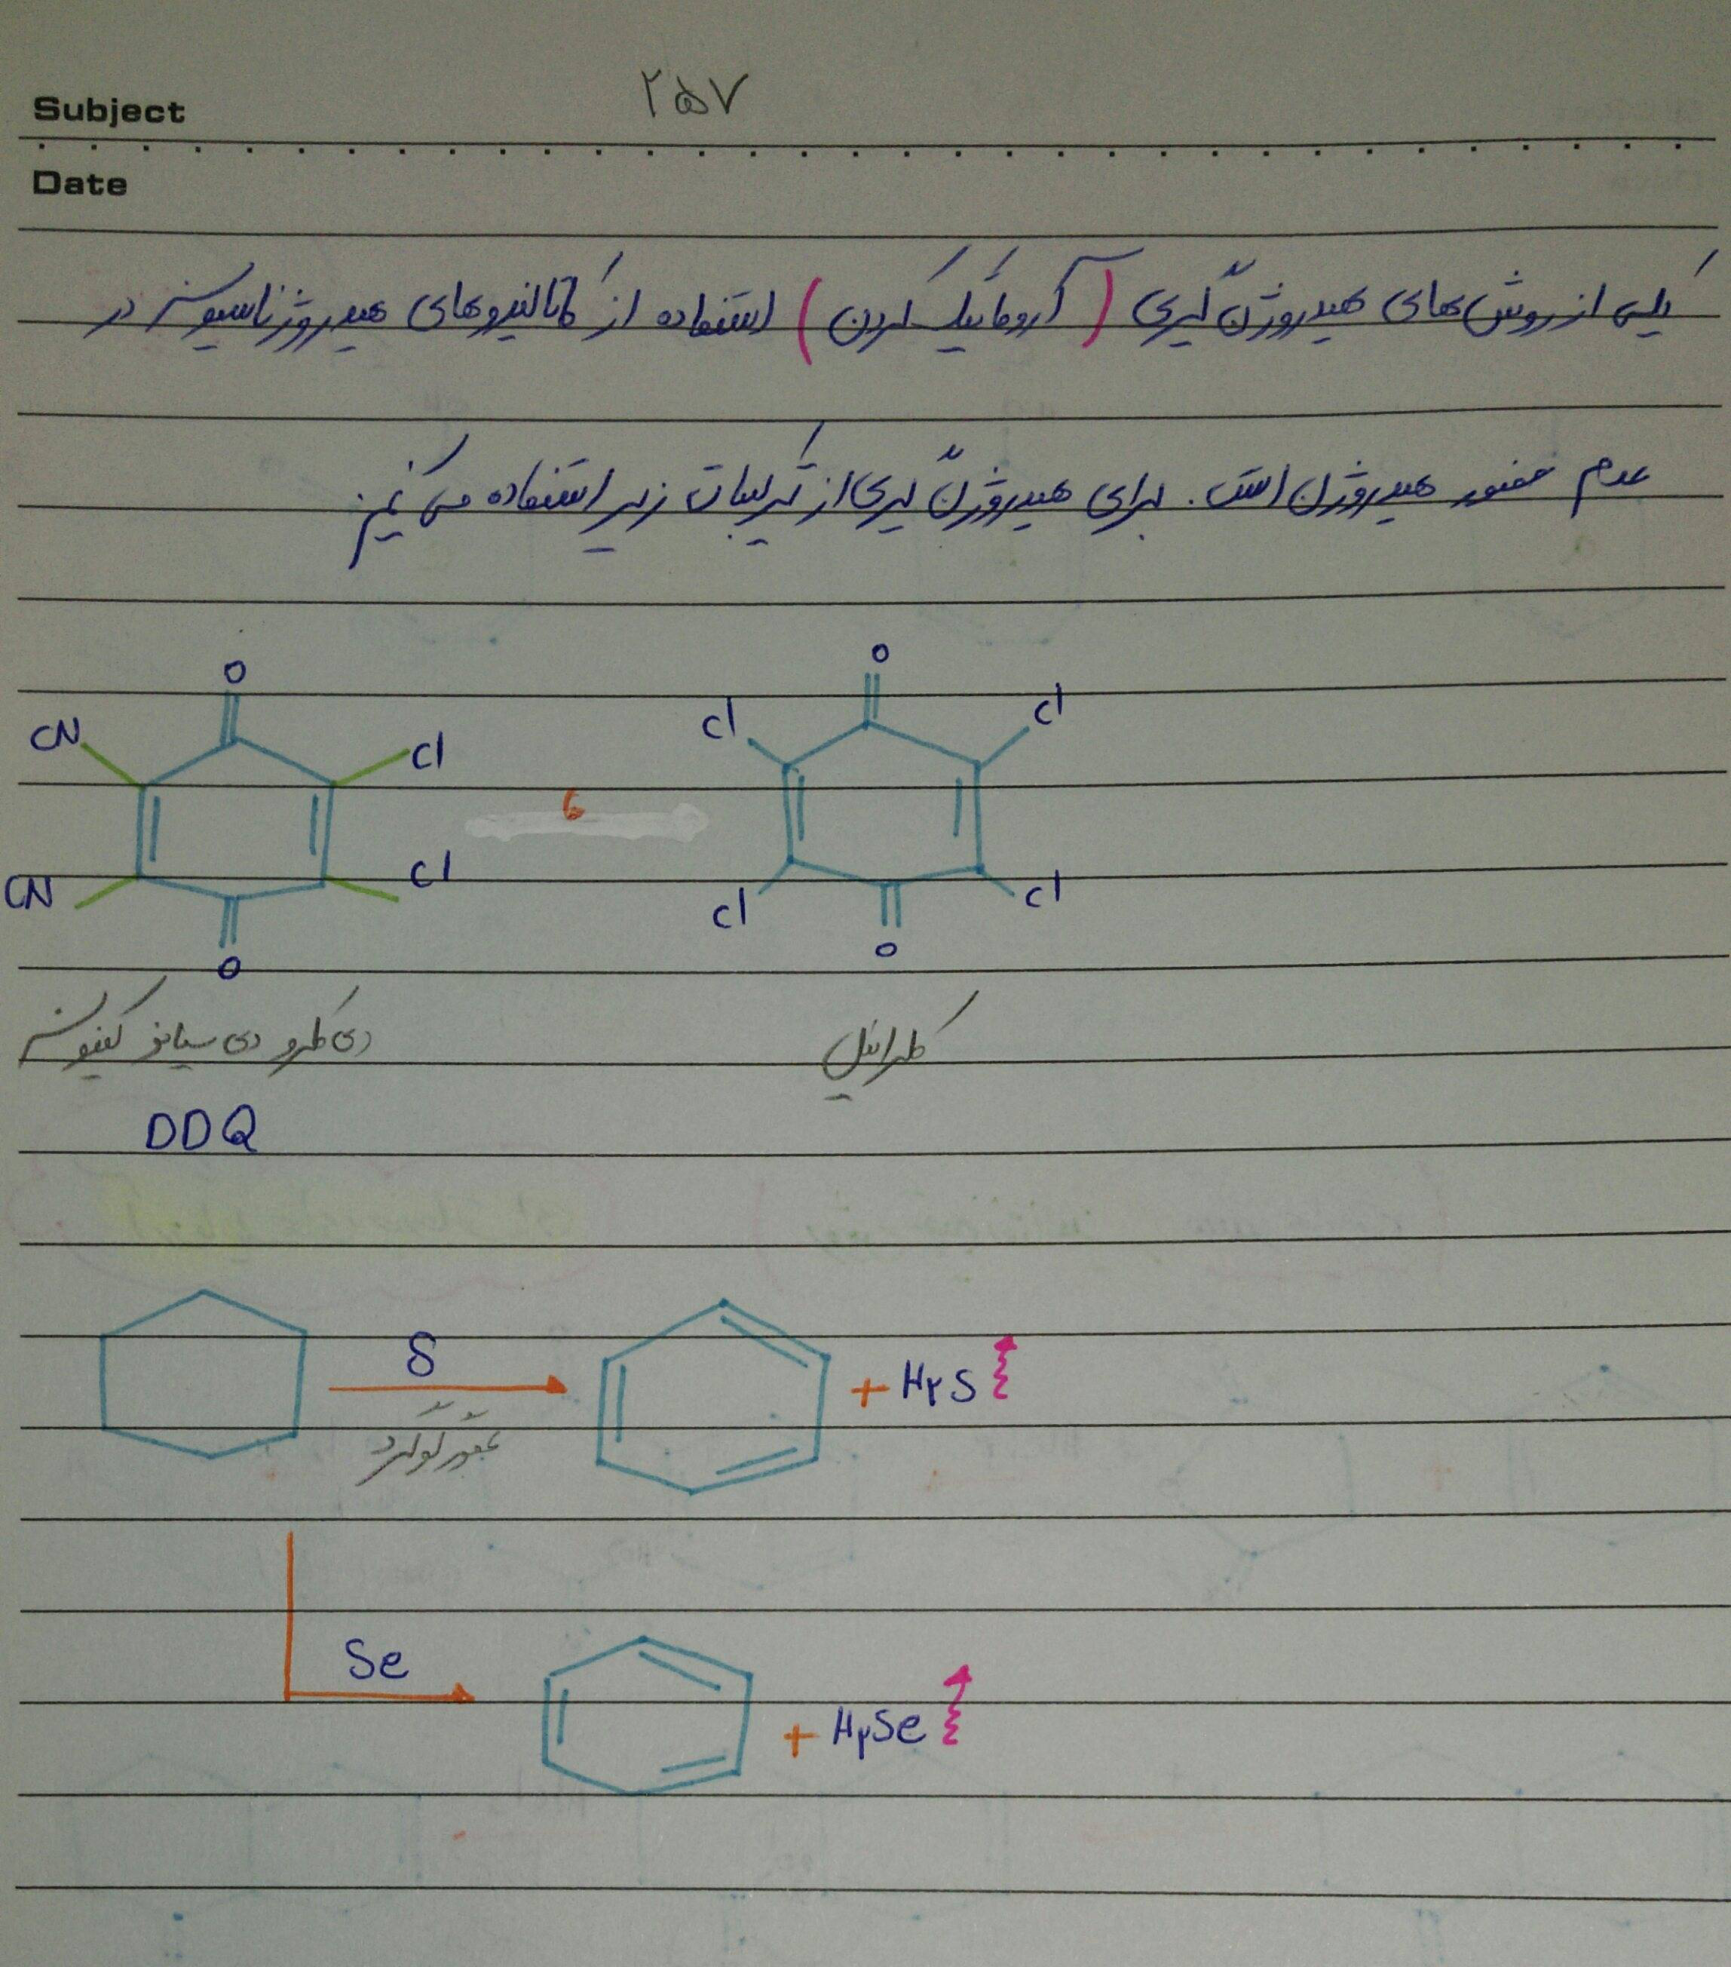 ۲۵۷
Subject
Date
یکی از روش های هیدروژن گیری (آروماتیک کردن) استفاده از کاتالیزوهای هیدروژناسیون در
عدم حضور هیدروژن است. برای هیدروژن گیری از ترکیبات زیر استفاده می کنیم
O O
CN Cl Cl Cl
و
CN Cl Cl Cl
O O
کلرانیل دی کلرو دی سیانو کینون
DDQ
S
+ H۲S
بخور گوگرد
Se
+ H۲Se